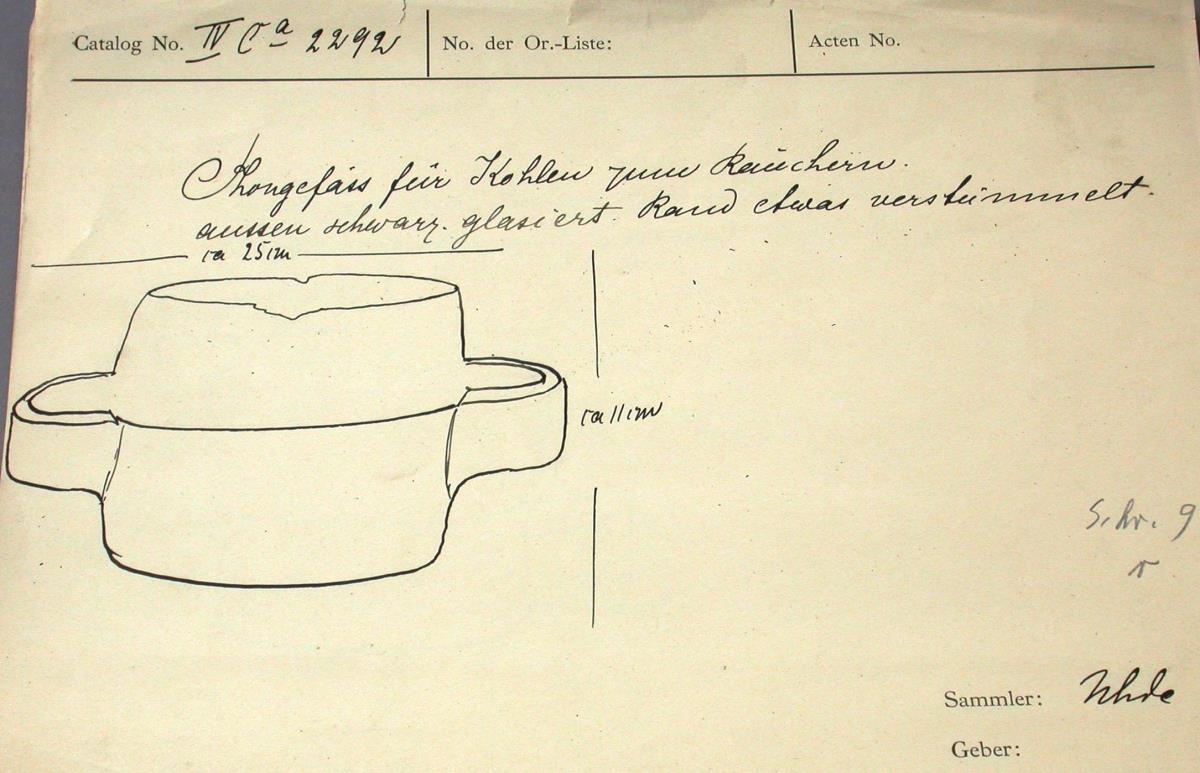 Catalog No. IV Ca 2292 No. der Or.-Liste: Acten No.
Thongefäss für Kohlen zum Räuchern.
aussen schwarz. glasiert. Rand etwas verstümmelt.
ca 25 cm
ca 11 cm
Schr. 9
Sammler: Uhde
Geber: